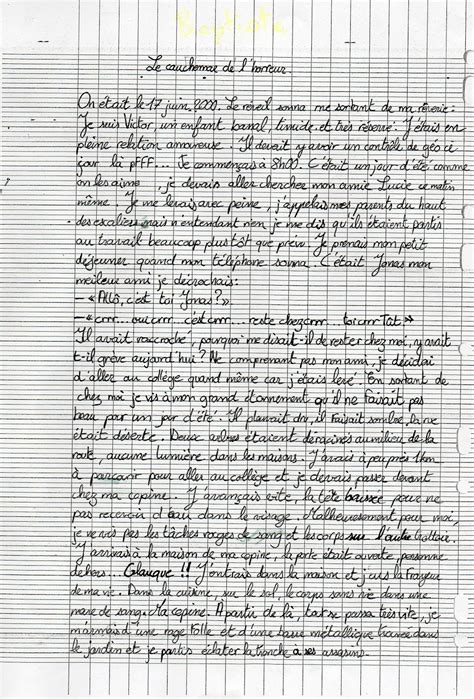 Baptiste
Le cauchemar de l'horreur.
On était le 17 juin 2000. Le réveil sonna me sortant de ma rêverie :
Je suis Victor, un enfant banal, timide et très réservé. J'étais en
pleine relation amoureuse. Il devait y avoir un contrôle de géo ce
jour là pFFF... Je commençais à 8h00. C'était un jour d'été comme
on les aime, je devais aller chercher mon amie Lucie ce matin
même. Je me levais avec peine, j'appelais mes parents du haut
des escaliers mais n'entendant rien je me dis qu'ils étaient partis
au travail beaucoup plustôt que prévu. Je prenais mon petit
déjeuner quand mon téléphone sonna. C'était Jonas mon
meilleur ami je décrochais :
- « Allô, c'est toi Jonas ? »
- « crrr... oui crrr... c'est crrr... reste chez crrr... toi crrr Tût »
Il avait raccroché, pourquoi me disait-il de rester chez moi, y avait
t-il grève aujourd'hui ? Ne comprenant pas mon ami, je décidai
d'aller au collège quand même car j'étais levé. En sortant de
chez moi je vis à mon grand étonnement qu'il ne faisait pas
beau pour un jour d'été. Il pleuvait dru, il faisait sombre, la rue
était déserte. Deux arbres étaient déracinés au milieu de la
route, aucune lumière dans les maisons. J'avais à peu près 1km
à parcourir pour aller au collège et je devais passer devant
chez ma copine. J'avançais vite, la tête baissée pour ne
pas recevoir d'eau dans le visage. Malheureusement pour moi,
je ne vis pas les tâches rouges de sang et les corps sur l'autre trottoir.
J'arrivais à la maison de ma copine, la porte était ouverte personne
dehors... Glauque !! J'entrais dans la maison et j'eus la frayeur
de ma vie. Dans la cuisine, sur le sol, le corps sans vie dans une
mare de sang. Ma copine. A partir de là, tout se passa très vite, je
m'armais d'une rage folle et d'une barre métallique trouvée dans
le jardin et je partis éclater la tronche à ses assassins.